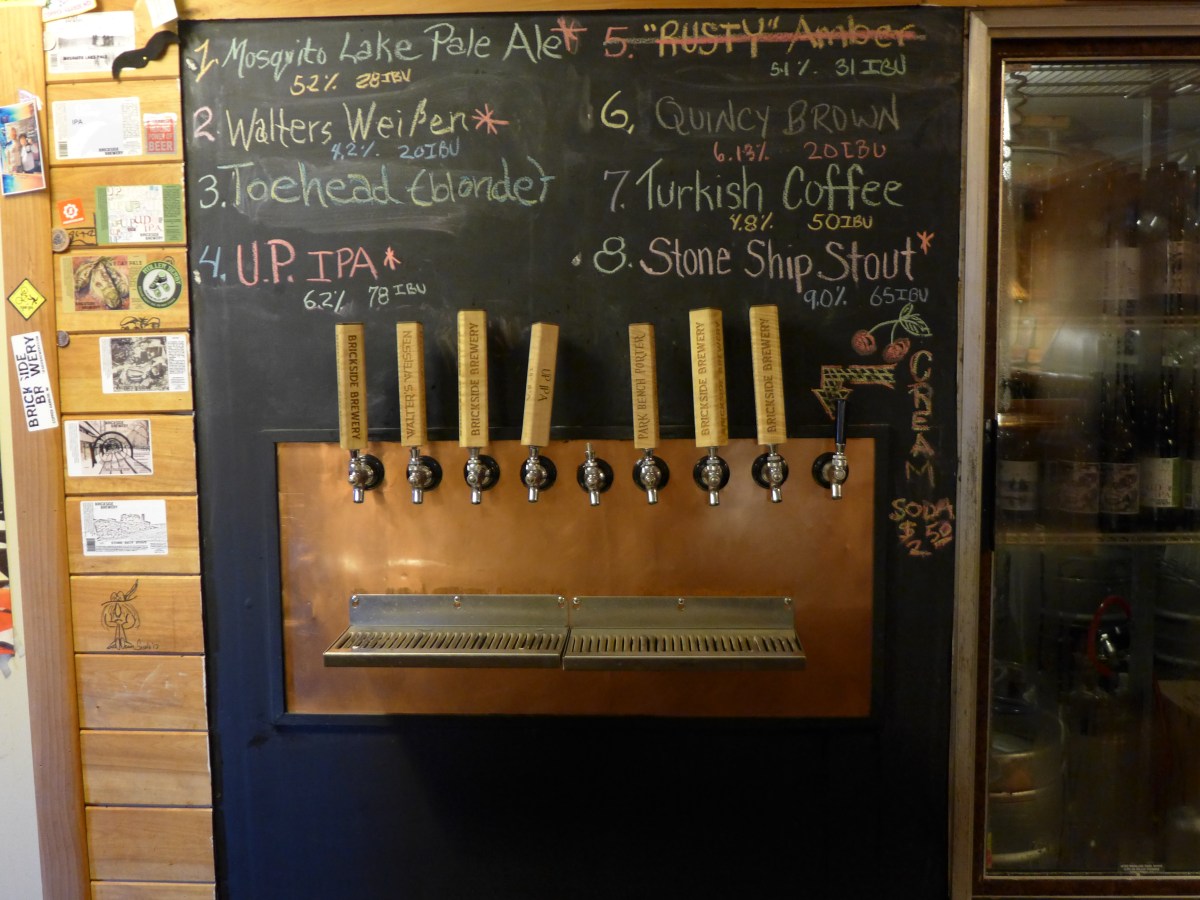 1 Mosquito Lake Pale Ale*
5.2% 28 IBU
2 Walters Weißen*
4.2% 20 IBU
3. Toehead (blonde)
4. U.P. IPA*
6.2% 78 IBU
5. "RUSTY" Amber
5.1% 31 IBU
6, QUINCY BROWN
6.13% 20 IBU
7. Turkish Coffee
4.8% 50 IBU
8. Stone Ship Stout*
9.0% 65 IBU
CREAM
SODA
$2.50
BRICKSIDE BREWERY
WALTER'S WEISSEN
BRICKSIDE BREWERY
UP IPA
PARK BENCH PORTER
BRICKSIDE BREWERY
BRICKSIDE BREWERY
IPA
BEER
UP
IPA
BRICKSIDE
BREWERY